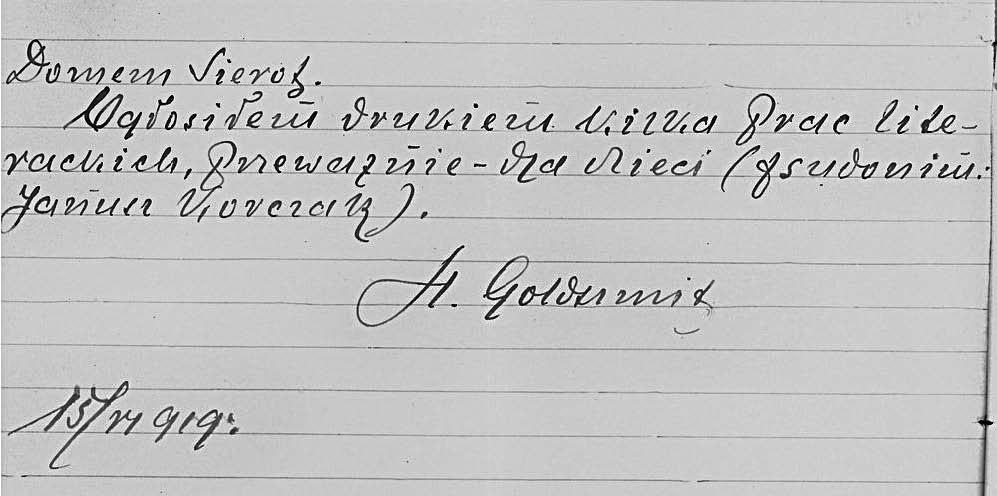 Domem Sierot.
Ogłosiłem drukiem kilka prac lite-
rackich, przeważnie - dla dzieci (psudonim:
Janusz Korczak).
H. Goldszmit
15/VI 919.